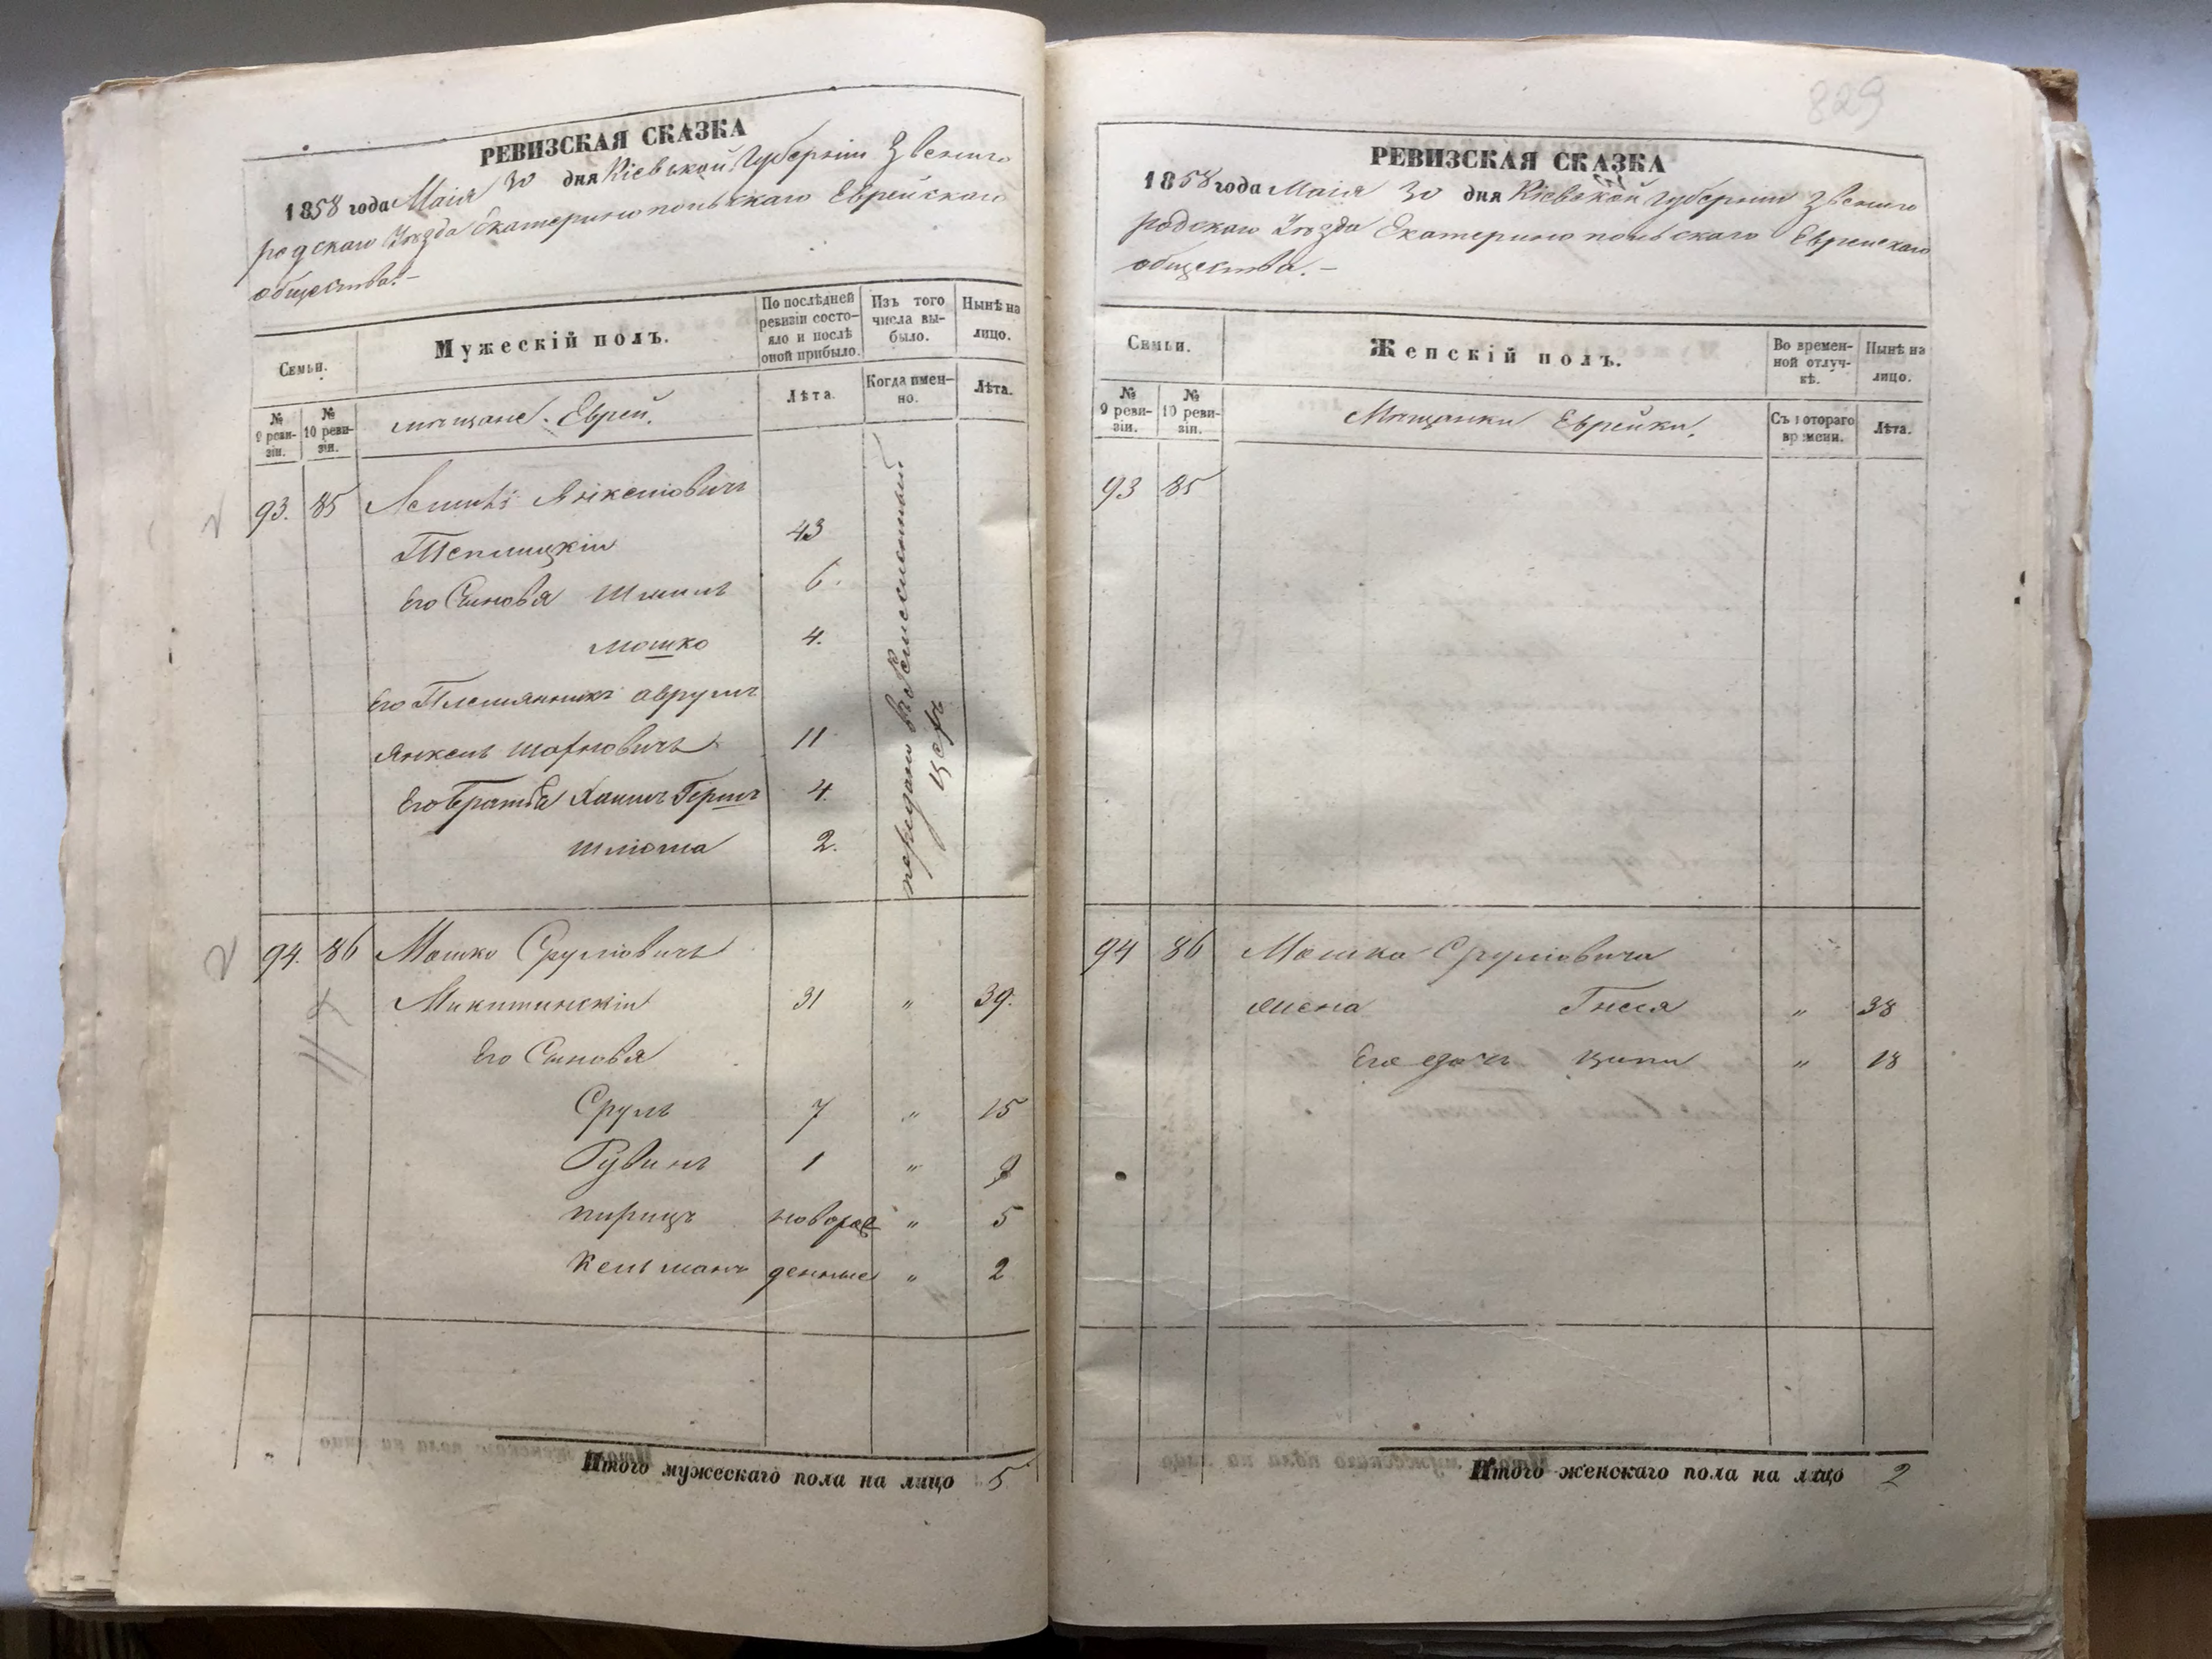 РЕВИЗСКАЯ СКАЗКА
1858 года Маія 30 дня Кіевской Губерніи Звениго
родскаго Уѣзда Екатеринопольскаго Еврейскаго
общества.-
Семьи.
Мужескій полъ.
По послѣдней ревизіи состо-
яло и послѣ оной прибыло.
Изъ того числа вы-
было.
Нынѣ на лицо.
№ 9 реви-
зіи.
№ 10 реви-
зіи.
мѣщане. Евреи.
Лѣта.
Когда имен-
но.
Лѣта.
93. 85 Янкелiовичъ
Теплицкіи 43
Его Сыновя Шмиль 6.
мошко 4.
Его Племянникъ аврумъ
Янкель 11
Его Братья Хаимъ Гершъ 4.
Шліома 2.
передано въ
94. 86 Мошко Сруліовичъ
Микитинскіи 31 " 39.
Его Сыновя
Сруль 7 " 15
Рувинъ 1 " 9
пирицъ новорож " 5
Кельманъ денные " 2
Итого мужескаго пола на лицо 5
829
РЕВИЗСКАЯ СКАЗКА
1858 года Маія 30 дня Кіевской Губерніи Звениго
родскаго Уѣзда Екатеринопольскаго Еврейскаго
общества.-
Семьи.
Женскій полъ.
Во времен-
ной отлуч-
кѣ.
Нынѣ на лицо.
№ 9 реви-
зіи.
№ 10 реви-
зіи.
Мѣщанки Еврейки.
Съ котораго времени.
Лѣта.
93 85
94 86 Мошка Сруліовича
жена Гнеся " 38
Его дочь ципи " 18
Итого женскаго пола на лицо 2